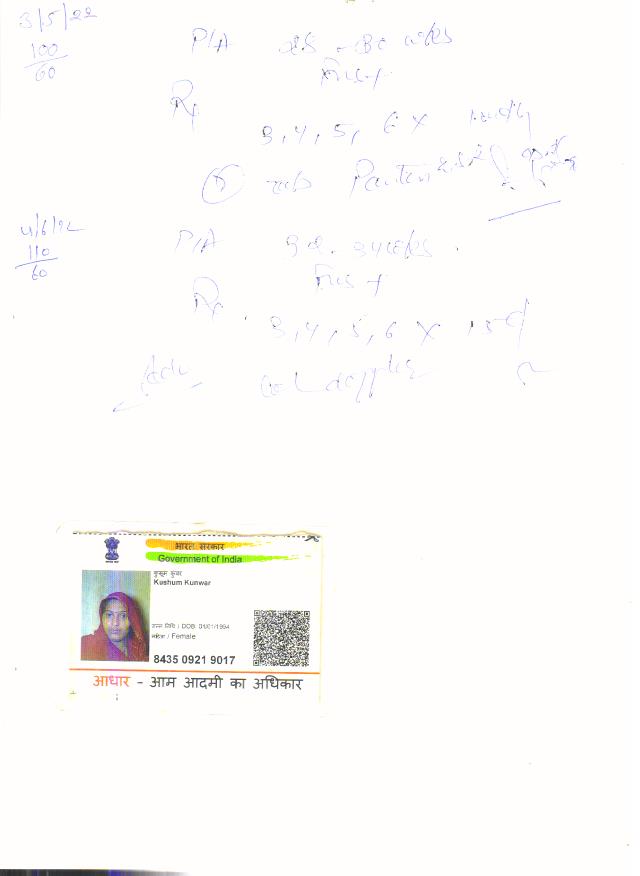 3/5/22
100
60
P/A 28 - 30 wks
FHS +
Rx
3, 4, 5, 6 X
tab
4/6/22
110
60
P/A 32 - 34 wks.
FHS +
Rx
3, 4, 5, 6 X 15 d
Adv
col doppler
भारत सरकार
Government of India
कुसुम कुंवर
Kushum Kunwar
जन्म तिथि / DOB: 01/01/1994
महिला / Female
8435 0921 9017
आधार - आम आदमी का अधिकार